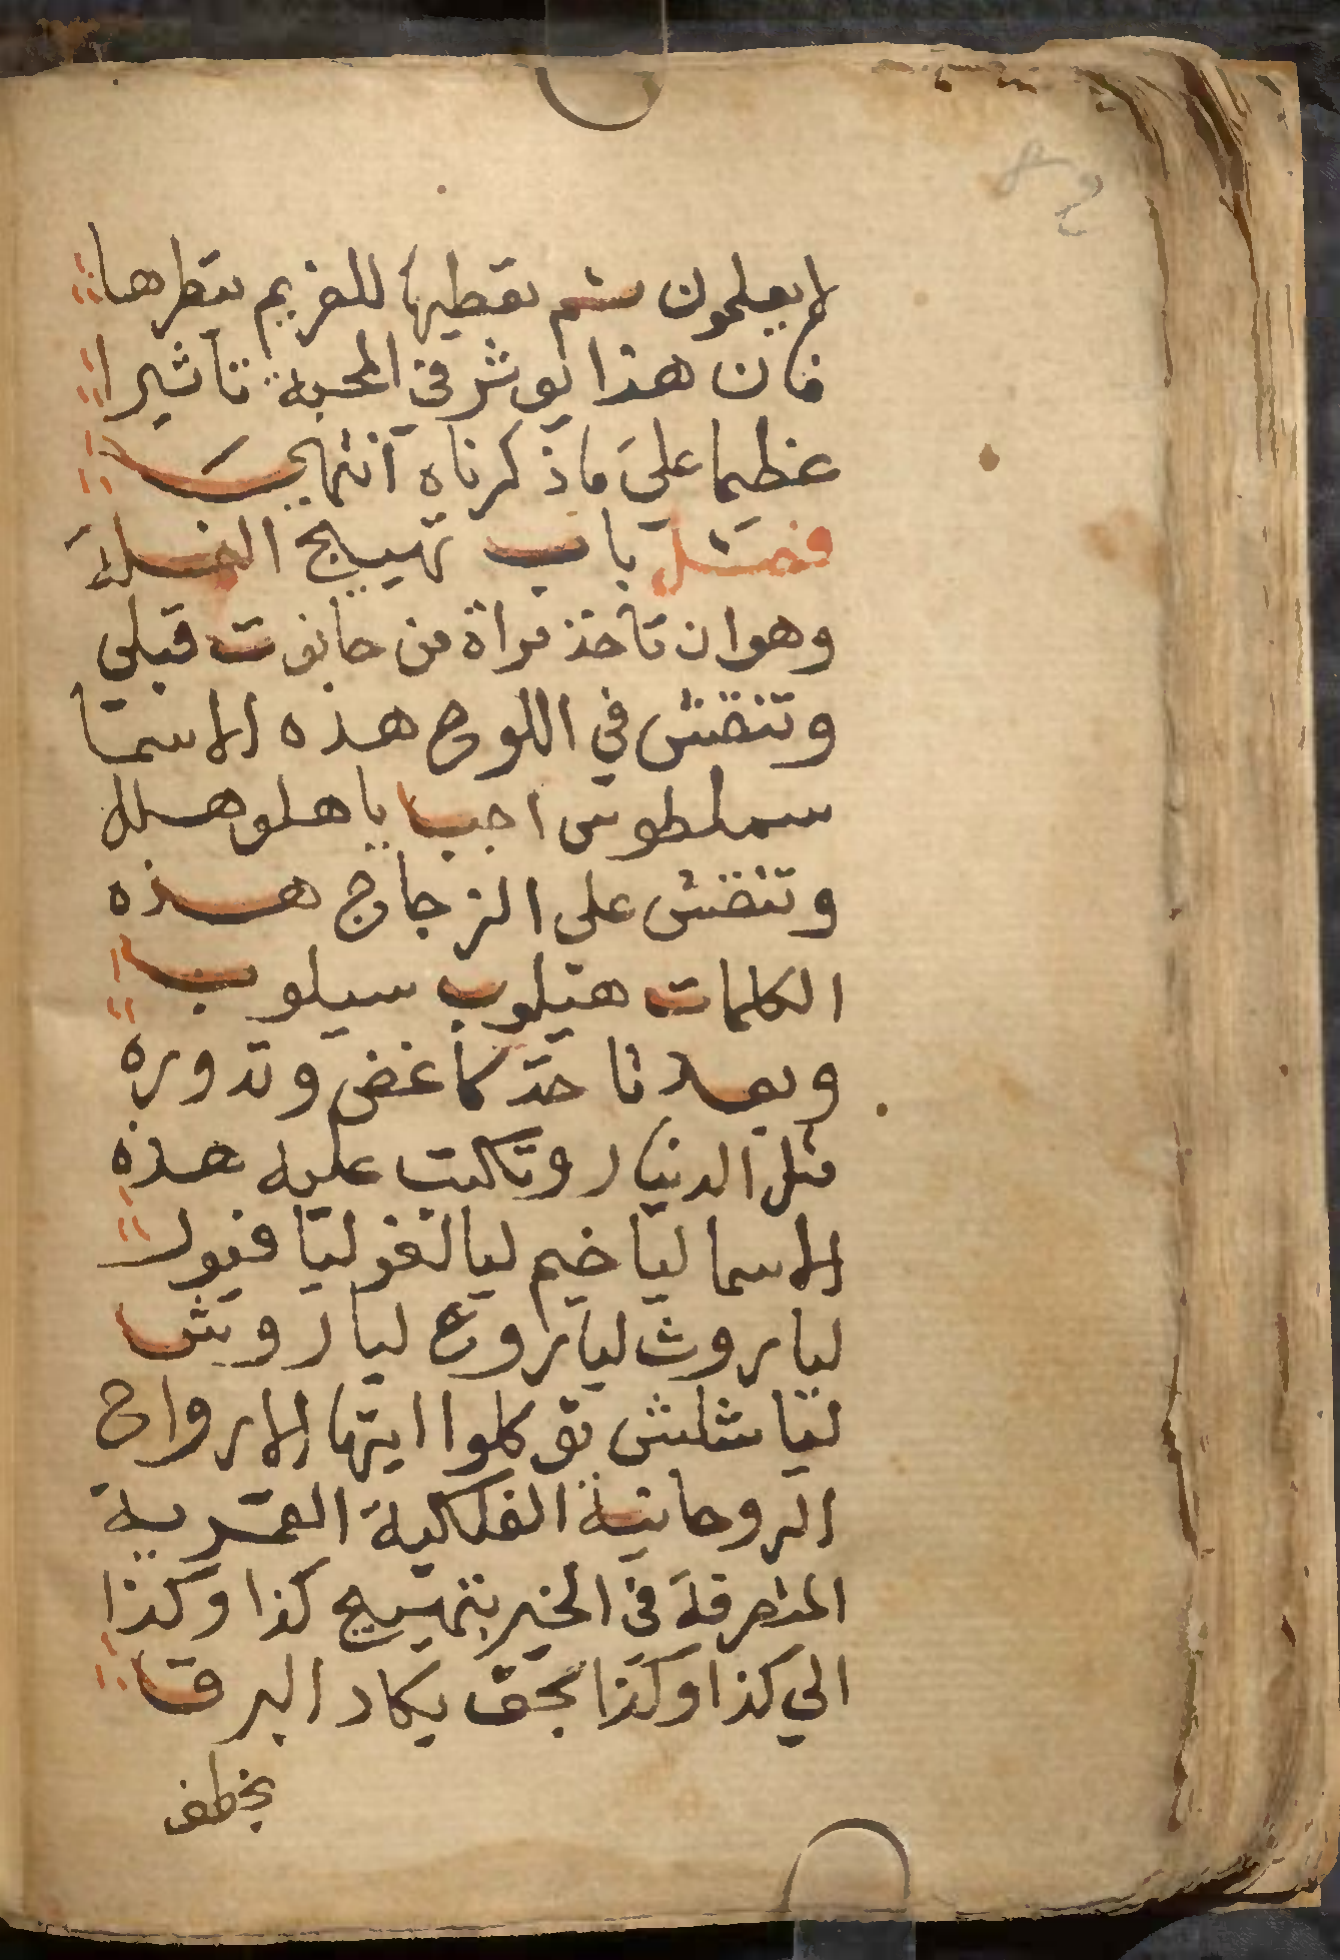 لا يعلمون ثم تعطيها للغريم ينظرها
فان هذا يوثر في المحبة تاثيرا
عظيما علي ما ذكرناه انتها
فصل باب تهييج
وهو ان تاخذ مراة من حانوت قبلي
وتنقش في اللوح هذه الاسما
سملطوس اجب يا هلوهلل
وتنقش على الزجاج هذه
الكلمات هيلوب سيلوب
وبعد تاخذ كاغض وتدوره
مثل الدنيار وتكتب عليه هذه
الاسما لياخيم ليالغو ليافور
لياروث لياروغ لياروش
لياشلش توكلوا ايتها الارواح
الروحانية الفلكية القمرية
المتصرفة في الخير بتهييج كذا وكذا
الي كذا وكذا بحق يكاد البرق
يخطف